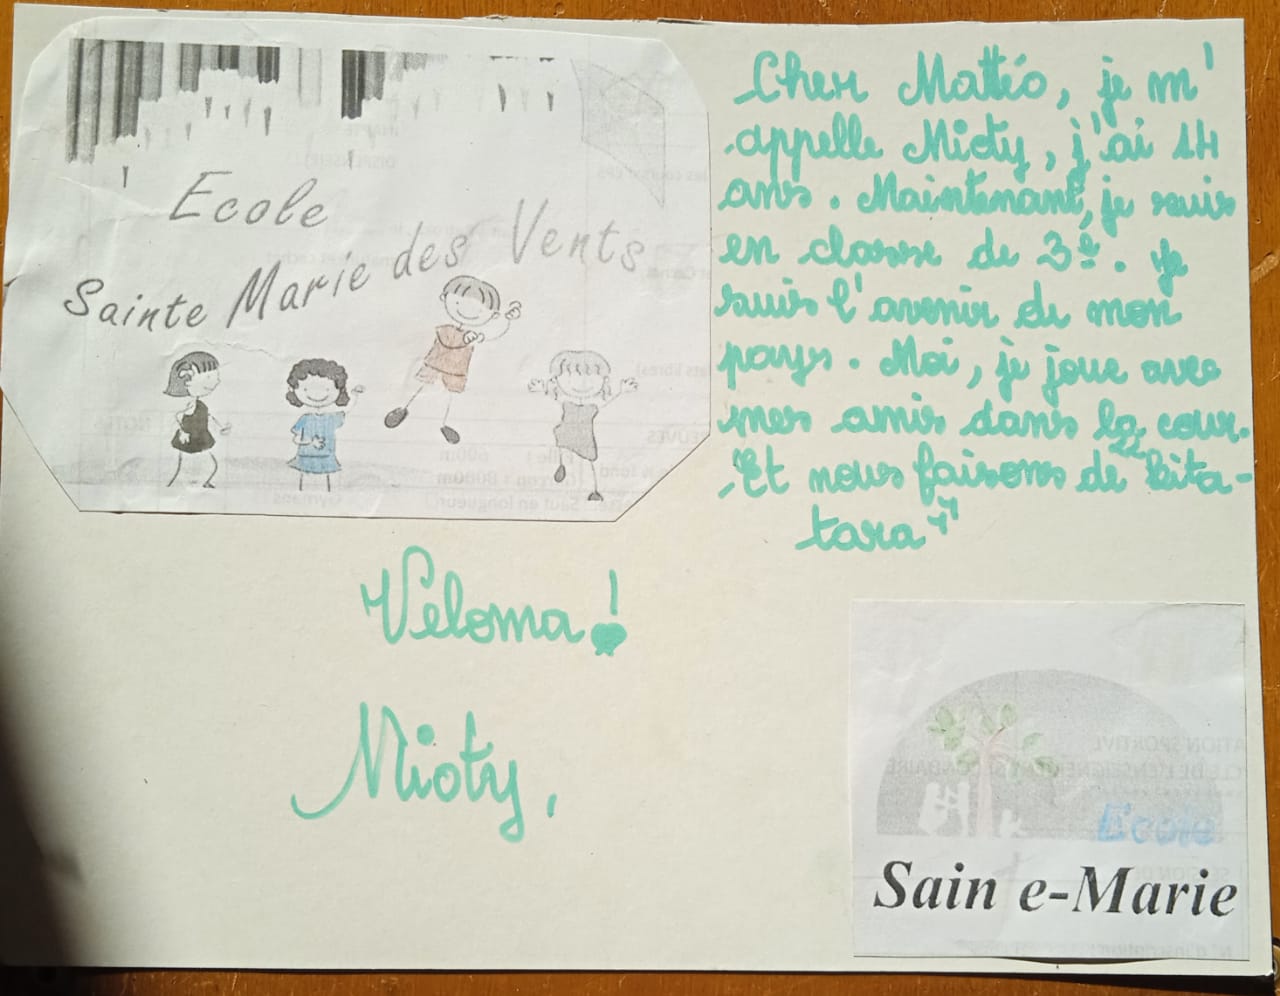 Ecole
Sainte Marie des Vents
Cher Mattéo, je m'
appelle Mioty, j'ai 14
ans. Maintenant, je suis
en classe de 3è. Je
suis l'avenir de mon
pays. Moi, je joue avec
mes amis dans la cour.
Et nous faisons de "kita-
tara"
Veloma!
Mioty,
Ecole
Sain e-Marie